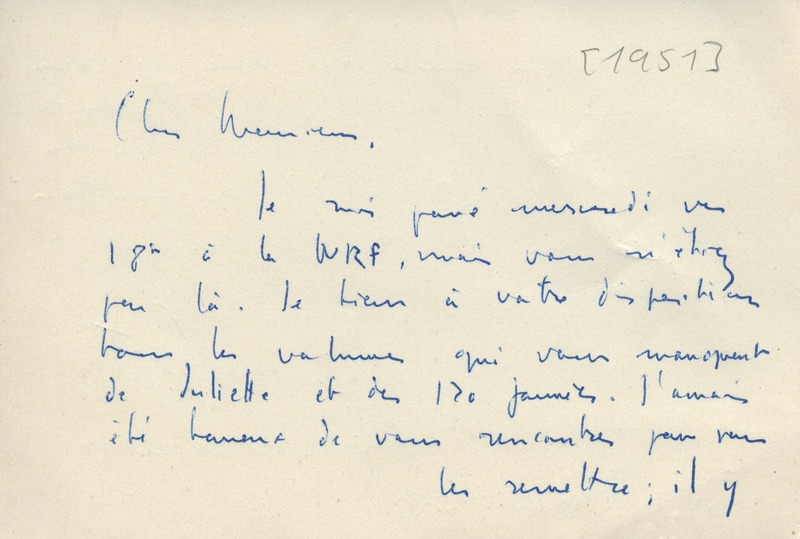 [1951]
Cher Monsieur,
Je suis passé mercredi vers
18h à la NRF, mais vous n'étiez
pas là. Je tiens à votre disposition
tous les volumes qui vous manquent
de Juliette et des 120 journées. J'aurais
été heureux de vous rencontrer pour vous
les remettre ; il y